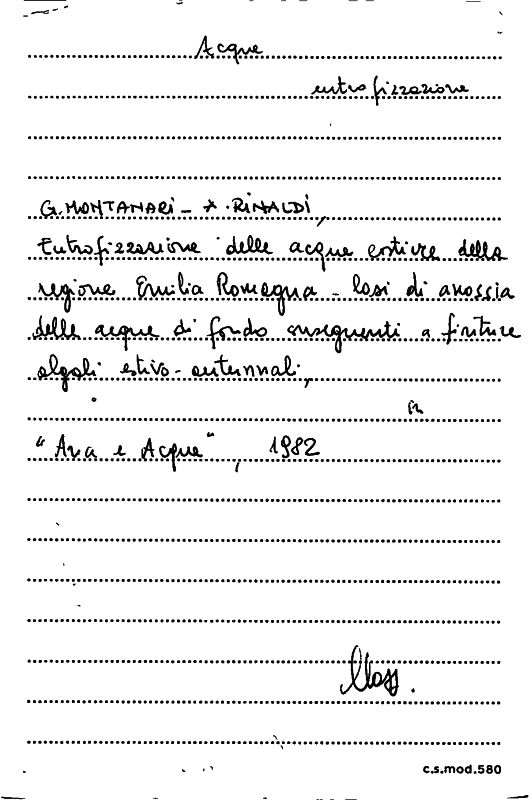 Acque
eutrofizzazione
G. MONTANARI - A. RINALDI,
Eutrofizzazione delle acque costiere della
regione Emilia Romagna - Casi di anossia
delle acque di fondo conseguenti a fioriture
algali estivo-autunnali,
in
"Aria e Acqua", 1982
c.s.mod.580